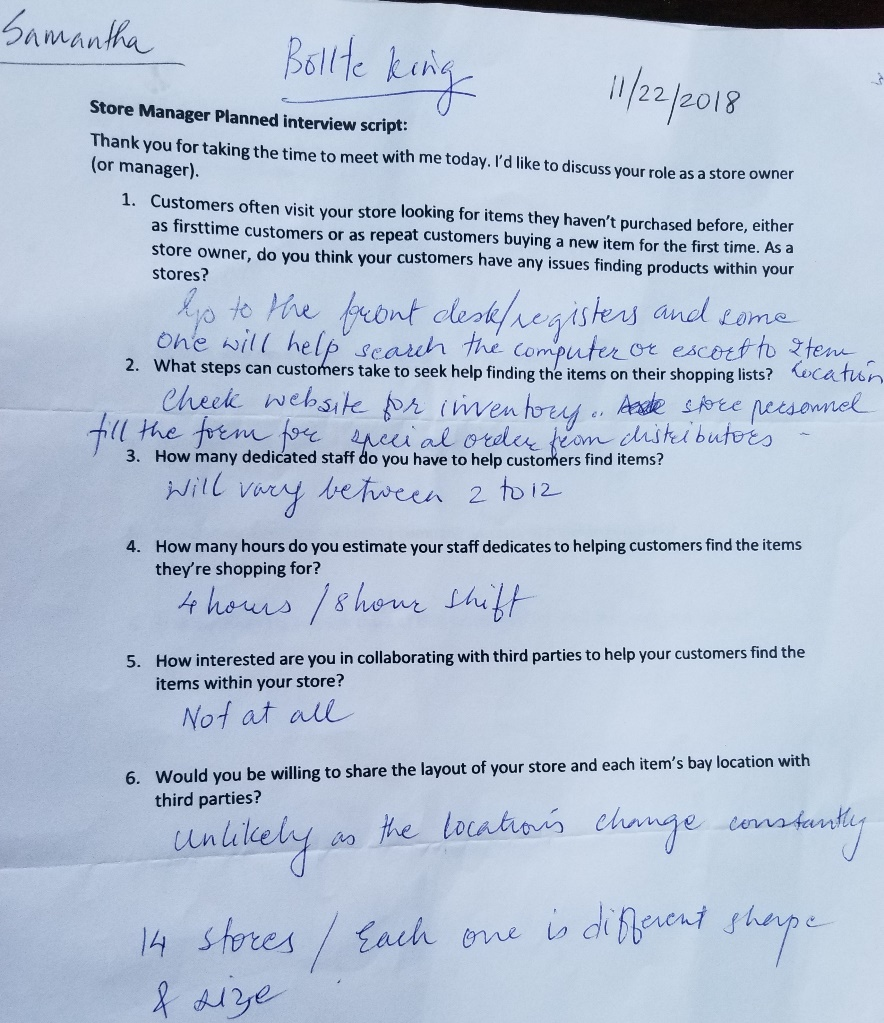 Samantha
Bollte King
11/22/2018
Store Manager Planned interview script:
Thank you for taking the time to meet with me today. I'd like to discuss your role as a store owner
(or manager).
1. Customers often visit your store looking for items they haven't purchased before, either
as firsttime customers or as repeat customers buying a new item for the first time. As a
store owner, do you think your customers have any issues finding products within your
stores?
to the front desk/registers and some
one will help search the computer or escort to Item
2. What steps can customers take to seek help finding the items on their shopping lists? location
Check website for inventory.. store personnel
fill the form for special order from distributors -
3. How many dedicated staff do you have to help customers find items?
Will vary between 2 to 12
4. How many hours do you estimate your staff dedicates to helping customers find the items
they're shopping for?
4 hours / 8 hour shift
5. How interested are you in collaborating with third parties to help your customers find the
items within your store?
Not at all
6. Would you be willing to share the layout of your store and each item's bay location with
third parties?
Unlikely as the locations change constantly
14 stores / Each one is different shape
& size